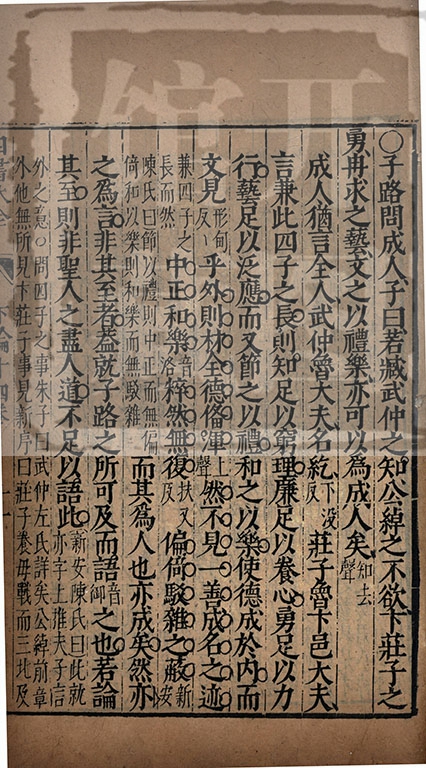 ○子路問成人子曰若臧武仲之知公綽之不欲卞莊子之
勇冉求之藝文之以禮樂亦可以爲成人矣知去聲
成人猶言全人武仲魯大夫名紇下没反莊子魯卞邑大夫
言兼此四子之長則知足以窮理廉足以養心勇足以力
行藝足以泛應而又節之以禮和之以樂使德成於內而
文見形甸反乎外則材全德備渾上聲然不見一善成名之迹
兼四子之長而然中正和樂音洛粹然無復扶又反偏倚駁雜之蔽新安
陳氏曰節以禮則中正而無偏倚和以樂則和樂而無駁雜而其爲人也亦成矣然亦
之爲言非其至者蓋就子路之所可及而語音御之也若論
其至則非聖人之盡人道不足以語此新安陳氏曰此就亦字上推夫子言
外之意○問四子之事朱子曰武仲左氏詳矣公綽前章
外他無所見卞莊子事見新序曰莊子養母戰而三北及